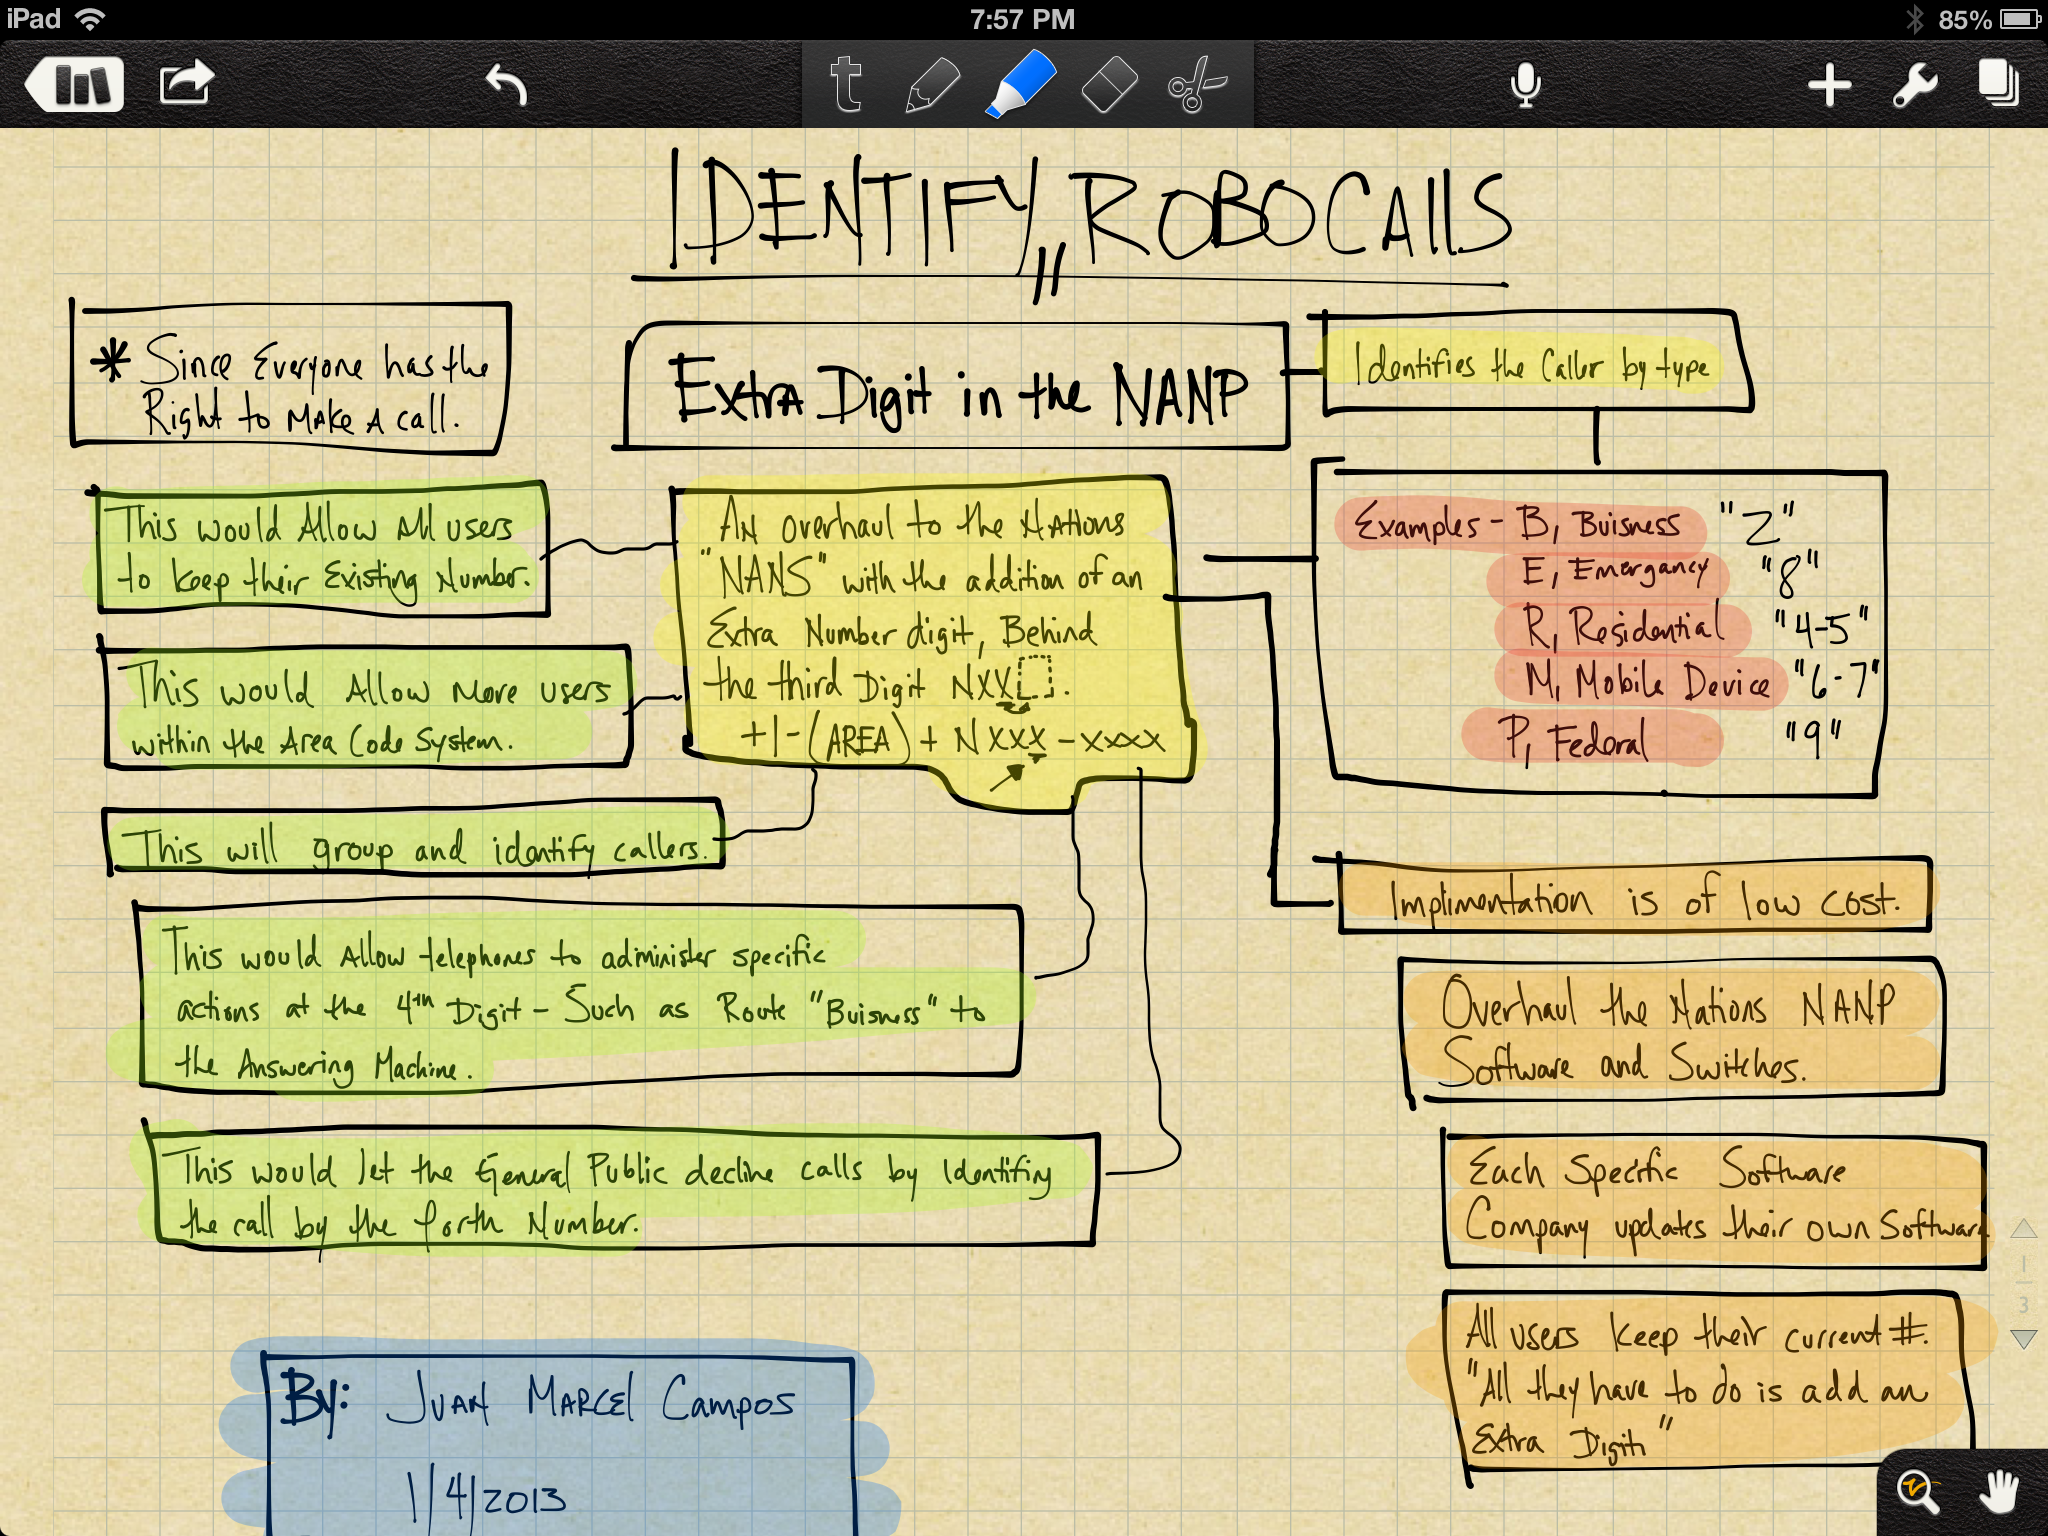 iPad
7:57 PM
85%
t
IDENTIFY ROBOCALLS
* Since Everyone has the
Right to Make A call.
Extra Digit in the NANP
Identifies the Caller by type
This would Allow All users
to keep their Existing Number.
This would Allow More users
within the Area Code System.
This will group and identify callers.
This would Allow telephones to administer specific
actions at the 4th Digit - Such as Route "Buisness" to
the Answering Machine.
This would let the General Public decline calls by Identifing
the call by the forth Number.
An overhaul to the Nations
"NANS" with the addition of an
Extra Number digit, Behind
the third Digit NXX .
+1-(AREA) + NXXX-XXXX
Examples - B, Buisness "2"
E, Emergancy "8"
R, Residential "4-5"
M, Mobile Device "6-7"
P, Federal "9"
Implimentation is of low cost.
Overhaul the Nations NANP
Software and Switches.
Each Specific Software
Company updates their own Software
All users keep their current #.
"All they have to do is add an
Extra Digit"
By: Juan Marcel Campos
1/4/2013
1
3